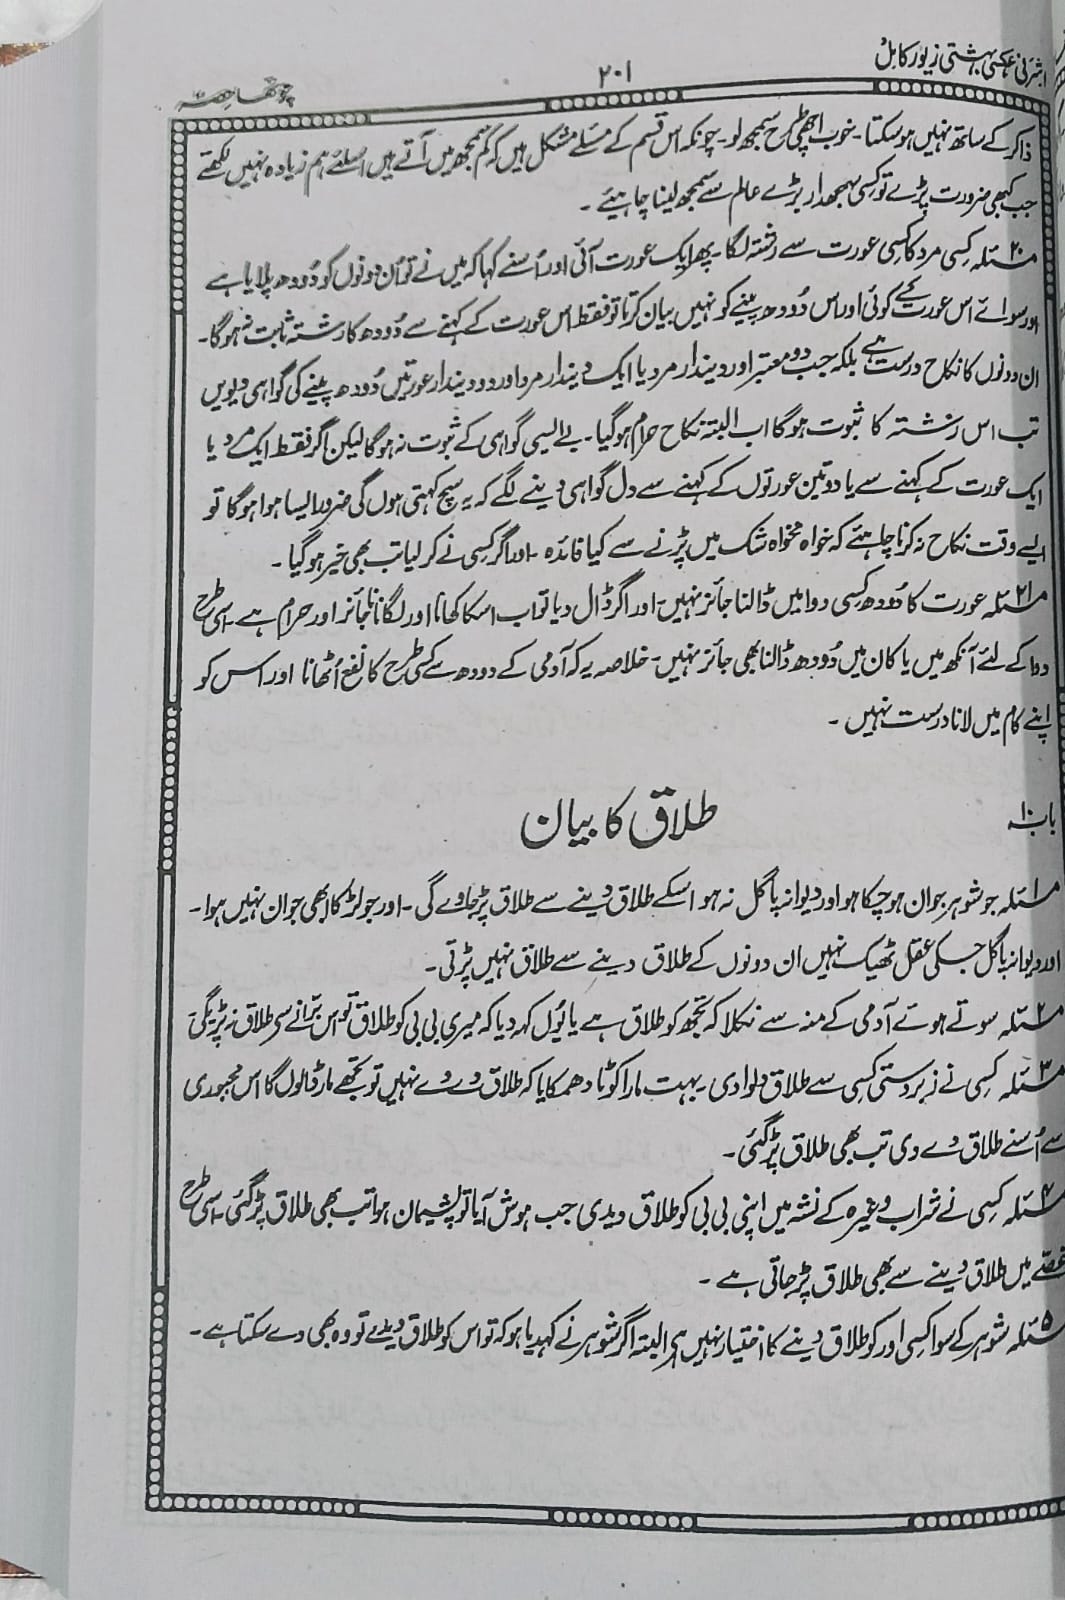 اشرفی عکسی بہشتی زیور کامل
۲۰۱
چوتھا حصہ
ذاکر کے ساتھ نہیں ہو سکتا۔ خوب اچھی طرح سمجھ لو۔ چونکہ اس قسم کے مسئلے مشکل ہیں کہ کم سمجھ میں آتے ہیں اسلئے ہم زیادہ نہیں لکھتے
جب کبھی ضرورت پڑے تو کسی سمجھدار بڑے عالم سے سمجھ لینا چاہیئے ۔
مسئلہ ۲۰ کسی مرد کا کسی عورت سے رشتہ لگا۔ پھر ایک عورت آئی اور اُسنے کہا کہ میں نے تو اُن دونوں کو دُودھ پلایا ہے
اور سوائے اس عورت کے کوئی اور اس دُودھ پینے کو نہیں بیان کرتا تو فقط اس عورت کے کہنے سے دُودھ کا رشتہ ثابت نہ ہوگا۔
ان دونوں کا نکاح درست ہے بلکہ جب دو معتبر اور دیندار مرد یا ایک دیندار مرد اور دو دیندار عورتیں دُودھ پینے کی گواہی دیویں
تب اس رشتہ کا ثبوت ہوگا اب البتہ نکاح حرام ہوگیا۔ بے ایسی گواہی کے ثبوت نہ ہوگا لیکن اگر فقط ایک مرد یا
ایک عورت کے کہنے سے یا دو تین عورتوں کے کہنے سے دل گواہی دینے لگے کہ یہ سچ کہتی ہوں گی ضرور ایسا ہوا ہوگا تو
ایسے وقت نکاح نہ کرنا چاہئے کہ خواہ مخواہ شک میں پڑنے سے کیا فائدہ ۔ اور اگر کسی نے کر لیا تب بھی خیر ہوگیا ۔
مسئلہ ۲۱ عورت کا دُودھ کسی دوا میں ڈالنا جائز نہیں۔ اور اگر ڈال دیا تو اب اسکا کھانا اور لگانا ناجائز اور حرام ہے ۔ اسی طرح
دوا کے لئے آنکھ میں یا کان میں دُودھ ڈالنا بھی جائز نہیں۔ خلاصہ یہ کہ آدمی کے دودھ سے کسی طرح کا نفع اُٹھانا اور اس کو
اپنے کام میں لانا درست نہیں ۔
باب ۱۰
طلاق کا بیان
مسئلہ ۱ جو شوہر جوان ہو چکا ہو اور دیوانہ پاگل نہ ہو اسکے طلاق دینے سے طلاق پڑ جاوے گی ۔ اور جو لڑکا ابھی جوان نہیں ہوا ۔
اور دیوانہ پاگل جسکی عقل ٹھیک نہیں ان دونوں کے طلاق دینے سے طلاق نہیں پڑتی ۔
مسئلہ ۲ سوتے ہوئے آدمی کے منہ سے نکلا کہ تجھ کو طلاق ہے یا یُوں کہہ دیا کہ میری بی بی کو طلاق تو اس بڑانے سے طلاق نہ پڑیگی
مسئلہ ۳ کسی نے زبردستی کسی سے طلاق دلوادی ۔ بہت مارا کوٹا دھمکایا کہ طلاق دے دے نہیں تو تجھے مار ڈالوں گا اس مجبوری
سے اُسنے طلاق دے دی تب بھی طلاق پڑ گئی ۔
مسئلہ ۴ کسی نے شراب وغیرہ کے نشہ میں اپنی بی بی کو طلاق دیدی جب ہوش آیا تو پشیمان ہوا تب بھی طلاق پڑ گئی ۔ اسی طرح
غصے میں طلاق دینے سے بھی طلاق پڑ جاتی ہے ۔
مسئلہ ۵ شوہر کے سوا کسی اور کو طلاق دینے کا اختیار نہیں ہے البتہ اگر شوہر نے کہدیا ہو کہ تو اس کو طلاق دیدے تو وہ بھی دے سکتا ہے ۔